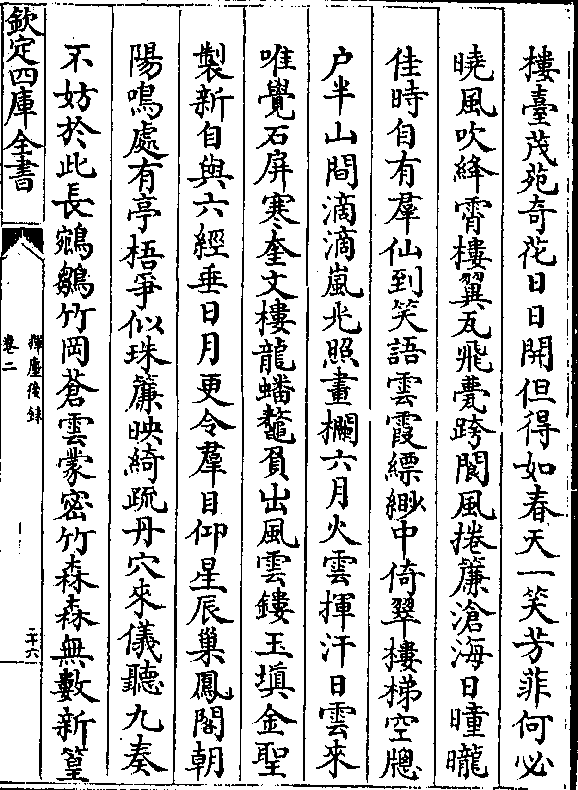 樓臺茂苑竒花日日開但得如春天一笑芳菲何必
曉風吹絳霄樓翼瓦飛甍跨閬風捲簾滄海日曈曨
佳時自有羣仙到笑語雲霞縹緲中倚翠樓梯空牕
户半山間滴滴嵐光照畫欄六月火雲揮汗日雲来
唯覺石屏寒奎文樓龍蟠鼇負出風雲鏤玉塡金聖
製新自與六經垂日月更令羣目仰星辰巢鳳閣朝
陽鳴處有亭梧爭似珠簾映綺疏丹穴來儀聽九奏
不妨於此長鵷鶵竹岡蒼雲蒙密竹森森無數新篁
欽定四庫全書
揮麈後録
卷二
二十六